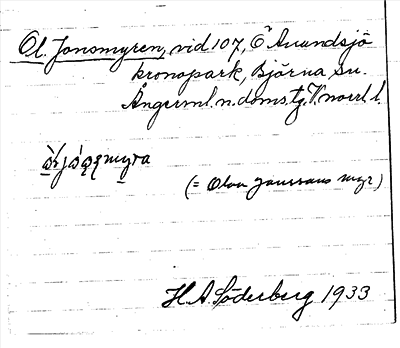 Ol. Jonsmyren, vid 107, Ö Anundsjö
kronopark, Björna sn.
Ångerml. n. doms. tg. V. norrl. l.
(= Olov Jonssons myr)
H. A. Söderberg 1933